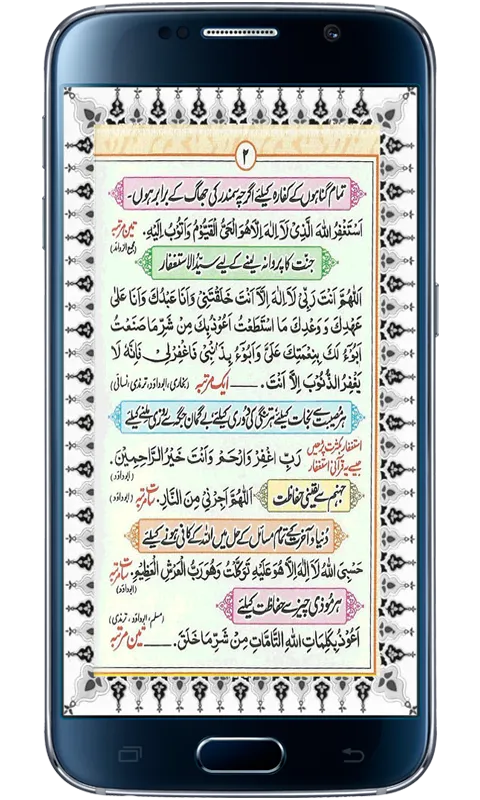 ۲
تمام گناہوں کے کفارہ کیلئے اگرچہ سمندر کی جھاگ کے برابر ہوں۔
اَسْتَغْفِرُ اللّٰهَ الَّذِیْ لَا اِلٰهَ اِلَّا هُوَ الْحَیُّ الْقَیُّوْمُ وَاَتُوْبُ اِلَیْهِ. تین مرتبہ
جنت کا پروانہ بننے کے لیے سیّدُ الاستغفار
اَللّٰهُمَّ اَنْتَ رَبِّیْ لَا اِلٰهَ اِلَّا اَنْتَ خَلَقْتَنِیْ وَاَنَا عَبْدُكَ وَاَنَا عَلٰی
عَهْدِكَ وَوَعْدِكَ مَا اسْتَطَعْتُ اَعُوْذُ بِكَ مِنْ شَرِّ مَا صَنَعْتُ
اَبُوْءُ لَكَ بِنِعْمَتِكَ عَلَیَّ وَاَبُوْءُ بِذَنْبِیْ فَاغْفِرْلِیْ فَاِنَّهٗ لَا
یَغْفِرُ الذُّنُوْبَ اِلَّا اَنْتَ. ..... ایک مرتبہ (بخاری، ابوداؤد، ترمذی، نسائی)
ہر مصیبت سے نجات کیلئے ہر تنگی کی دوری کیلئے بے گمان جگہ سے روزی ملنے کیلئے
استغفار بکثرت پڑھیں
جیسے یہ قرآنی استغفار
رَبِّ اغْفِرْ وَارْحَمْ وَاَنْتَ خَیْرُ الرَّاحِمِیْنَ. (ابوداؤد)
جہنم سے یقینی حفاظت
اَللّٰهُمَّ اَجِرْنِیْ مِنَ النَّارِ. سات مرتبہ (ابوداؤد)
دُنیا و آخرت کے تمام مسائل کے حل میں اللہ کے کافی ہونے کیلئے
حَسْبِیَ اللّٰهُ لَا اِلٰهَ اِلَّا هُوَ عَلَیْهِ تَوَكَّلْتُ وَهُوَ رَبُّ الْعَرْشِ الْعَظِیْمِ. سات مرتبہ (ابوداؤد)
ہر موذی چیز سے حفاظت کیلئے
(مسلم، ابوداؤد، ترمذی)
اَعُوْذُ بِكَلِمَاتِ اللّٰهِ التَّامَّاتِ مِنْ شَرِّ مَا خَلَقَ. ..... تین مرتبہ